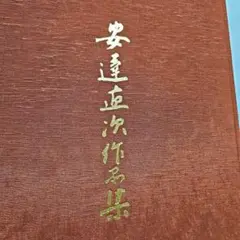 安達直次作品集